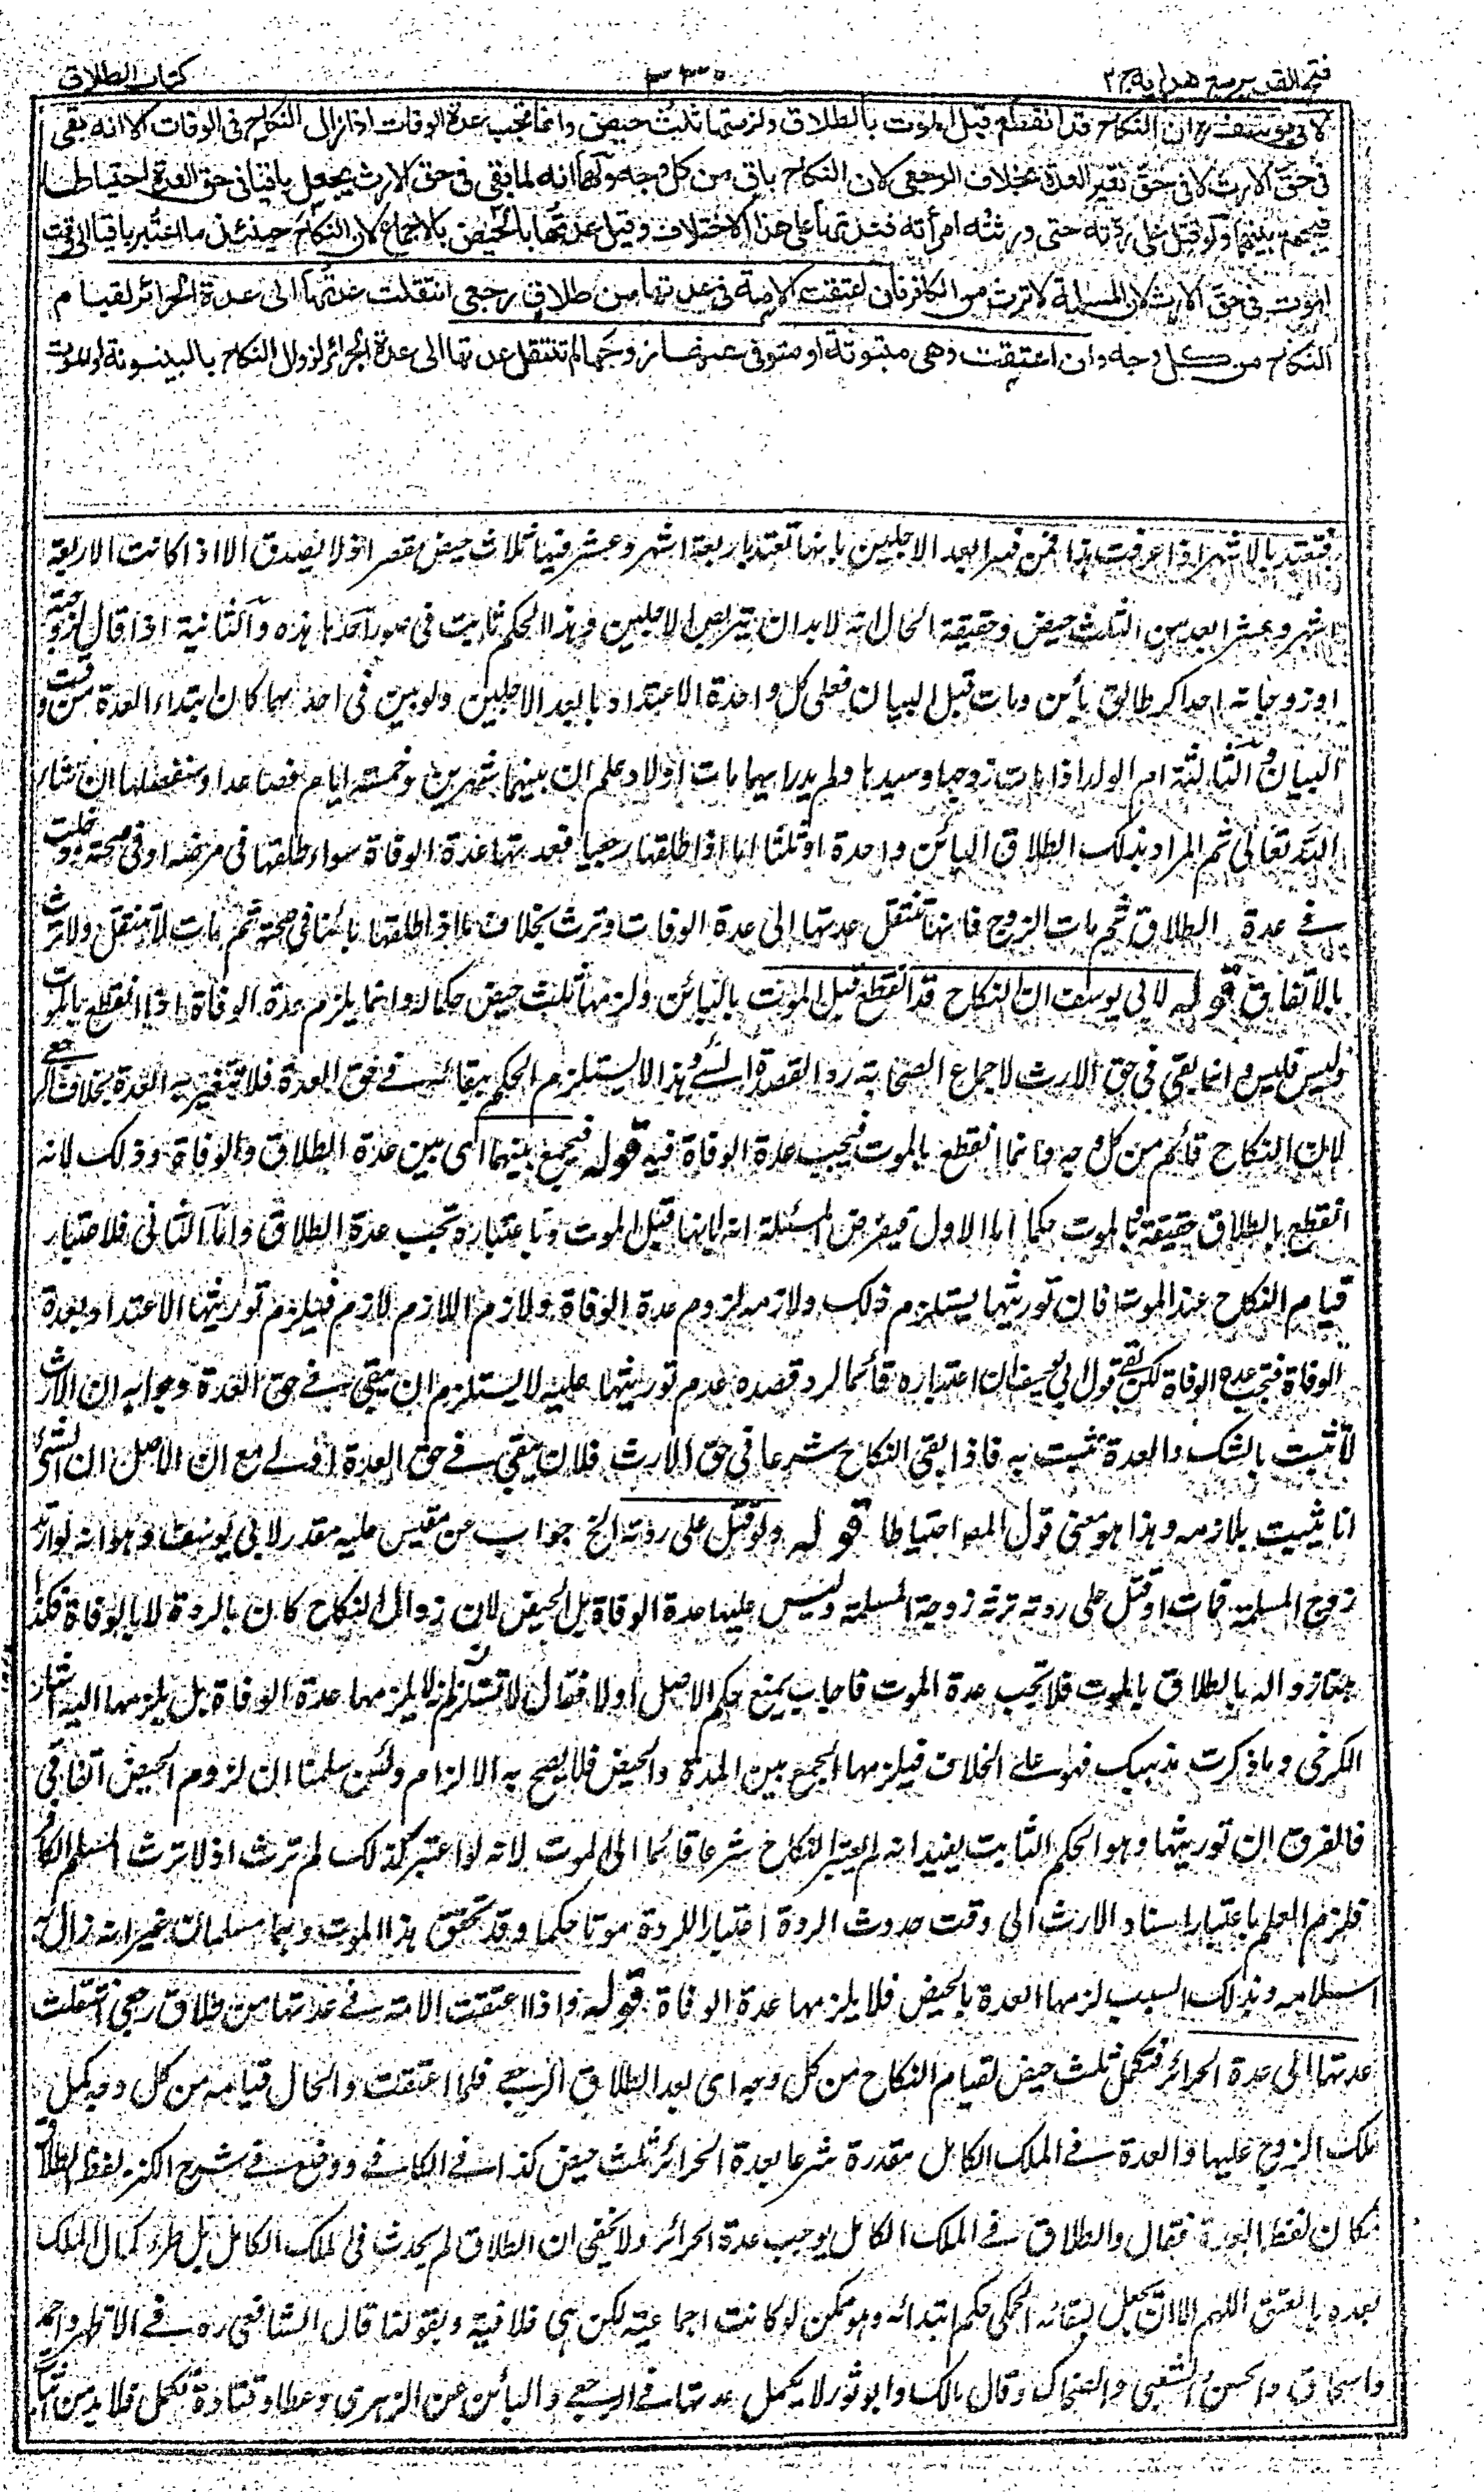 فتح القدير مع هدايه ج ٢
كتاب الطلاق
لابي يوسف ره ان النكاح قد انقطع قبل الموت بالطلاق ولزمتها ثلث حيض وانما تجب عدة الوفات اذا زال النكاح في الوفات الا انه بقى
في حق الارث لا في حق تغير العدة بخلاف الرجعى لان النكاح باق من كل وجه ولهما انه لما بقى في حق الارث يجعل باقيا في حق العدة احتياطا
فيجمع بينهما ولو قتل على ردته حتى ورثته امرأته فعدتها على هذا الاختلاف وقيل عدتها بالحيض بالاجماع لان النكاح حينئذ ما اعتبر باقيا الى وقت
الموت في حق الارث لان المسلمة لا ترث من الكافر فان اعتقت الامة في عدتها من طلاق رجعي انتقلت عدتها الى عدة الحرائر لقيام
النكاح من كل وجه وان اعتقت وهى مبتوتة او متوفى عنها زوجها لم تنتقل عدتها الى عدة الحرائر لزوال النكاح بالبينونة او الموت
فتعتد بالاشهر اذا عرفت هذا فمن فسر ابعد الاجلين بانها تعتد باربعة اشهر وعشر فيها ثلاث حيض قصر اذ لا يصدق الا اذا كانت الاربعة
اشهر وعشر ابعد من الثلث حيض وحقيقة الحال انه لا بد ان تتربص الاجلين وهذا الحكم ثابت في صور احدها هذه والثانية اذا قال لزوجتيه
او زوجاته احداكن طالق بائن ومات قبل البيان فعلى كل واحدة الاعتداد بابعد الاجلين ولو بين في احدهما كان ابتداء العدة من وقت
البيان والثالثة ام الولد اذا مات زوجها وسيدها ولم يدر ايهما مات اولا وعلم ان بينهما شهرين وخمسة ايام فصاعدا وسنفصلها ان شاء
الله تعالى ثم المراد بذلك الطلاق البائن واحدة او ثلثا اما اذا طلقها رجعيا فعدتها عدة الوفاة سواء طلقها في مرضه او في صحته ودخلت
في عدة الطلاق ثم مات الزوج فانها تنتقل عدتها الى عدة الوفات وترث بخلاف ما اذا طلقها بائنا في صحته ثم مات لا تنتقل ولا ترث
بالاتفاق قوله لابي يوسف ان النكاح قد انقطع قبل الموت بالبائن ولزمها ثلث حيض حكما له وانما يلزم عدة الوفاة اذا انقطع بالموت
وليس فليس وانما بقى في حق الارث لاجماع الصحابة رد القصده السئ وهذا لا يستلزم الحكم ببقائه في حق العدة فلا تتغير به العدة بخلاف الرجعي
لان النكاح قائم من كل وجه وانما انقطع بالموت فيجب عدة الوفاة فيه قوله فيجمع بينهما اى بين عدة الطلاق والوفاة وذلك لانه
انقطع بالطلاق حقيقة وبالموت حكما اما الاول فبفرض المسئلة انه ابانها قبل الموت وباعتباره تجب عدة الطلاق واما الثاني فلاعتبار
قيام النكاح عند الموت فان توريثها يستلزم ذلك ولازمه لزوم عدة الوفاة ولازم اللازم لازم فيلزم توريثها الاعتداد بعدة
الوفاة فتجب عدة الوفاة لكن بقى قول ابي يوسف ان اعتباره قائما لرد قصده عدم توريثها عليه لا يستلزم ان يبقى في حق العدة وجوابه ان الارث
لا يثبت بالشك والعدة تثبت به فاذا بقى النكاح شرعا في حق الارث فلان يبقى في حق العدة اولى مع ان الاصل ان الشئ
انما يثبت بلازمه وهذا هو معنى قول المصر احتياطا قوله ولو قتل على ردته الخ جواب عن مقيس عليه مقدر لابي يوسف وهو انه لو ارتد
زوج المسلمة فمات او قتل على ردته ترثه زوجته المسلمة وليس عليها عدة الوفاة بل الحيض لان زوال النكاح كان بالردة لا بالوفاة فكذا
هنا زواله بالطلاق لا بالموت فلا تجب عدة الموت فاجاب بمنع حكم الاصل اولا فقال لا نسلم انه لا يلزمها عدة الوفاة بل يلزمها اليه اشار
الكرخي وما ذكرت مذهبك فهو على الخلاف فيلزمها الجمع بين المدة والحيض فلا يصح به الالزام ولئن سلمنا ان لزوم الحيض اتفاقي
فالفرق ان توريثها وهو الحكم الثابت يفيد انه لم يعتبر النكاح شرعا قائما الى الموت لانه لو اعتبر كذلك لم ترث اذ لا ترث المسلمة الكافر
فلزم العلم باعتبار اسناد الارث الى وقت حدوث الردة اعتبارا للردة موتا حكما وقد تحقق هذا الموت وهما مسلمان غير انه زال به
اسلامه وبذلك السبب لزمها العدة بالحيض فلا يلزمها عدة الوفاة قوله واذا اعتقت الامة في عدتها من طلاق رجعي انتقلت
عدتها الى عدة الحرائر فتكمل ثلث حيض لقيام النكاح من كل وجه اى بعد الطلاق الرجعي فلما اعتقت والحال قيامه من كل وجه كمل
ملك الزوج عليها والعدة في الملك الكامل مقدرة شرعا بعدة الحرائر ثلث حيض كذا في الكافي ووقع في شرح الكنز لفظ الطلاق
مكان لفظ العدة فقال والطلاق في الملك الكامل يوجب عدة الحرائر ولا يخفى ان الطلاق لم يحدث في الملك الكامل بل طرء كمال الملك
بعده بالعتق اللهم الا ان يجعل لبقائه الحكمي حكم ابتدائه وهو ممكن لو كانت اجماعية لكن هي خلافية وبقولنا قال الشافعي ره في الاظهر واحمد
واسحاق والحسن والشعبي والضحاك وقال مالك وابو ثور لا يكمل عدتها في الرجعي والبائن عن الزهري وعطا وقتادة تكمل فلا بد من اثبات